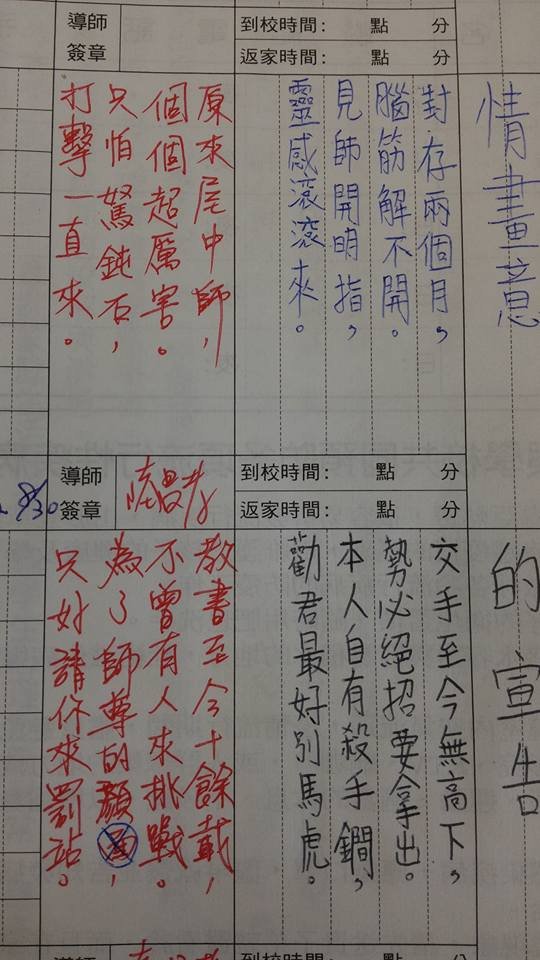 情畫意
到校時間: 點 分
返家時間: 點 分
導師
簽章
對存兩個月,
腦筋解不開。
見師開明指,
靈感滾滾來。
原來尾中師,
個個超厲害。
只怕駑鈍石,
打擊一直來。
的宣告
到校時間: 點 分
返家時間: 點 分
導師
簽章
8/30
交手至今無高下,
勢必絕招要拿出。
本人自有殺手鐧,
勸君最好別馬虎。
教書至今十餘載,
不曾有人來挑戰。
為了師尊的顏面,
只好請你來罰站。
到校時間: 點 分
導師